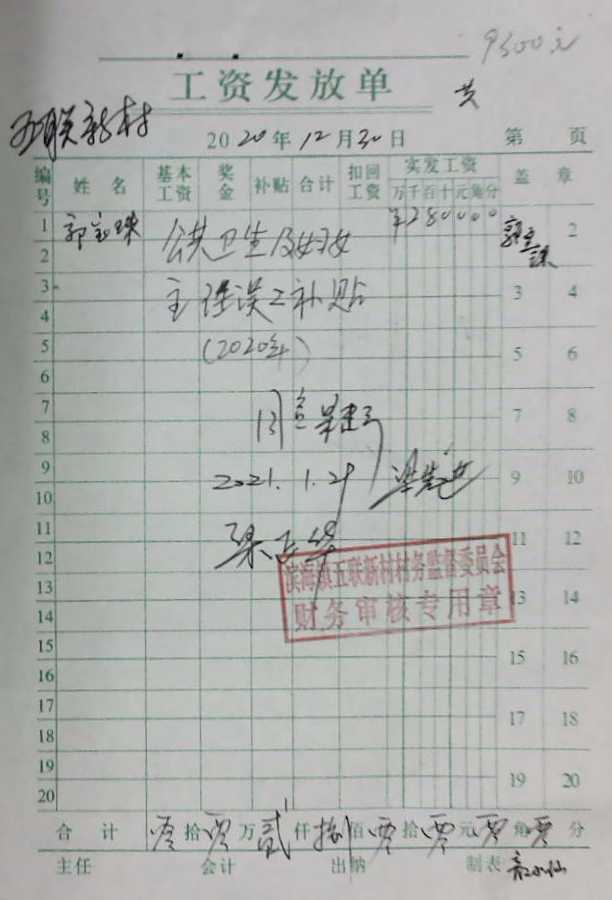 9300元
工资发放单
五联新村 共
2020年12月30日 第 页
编号 姓名 基本工资 奖金 补贴 合计 扣回工资 实发工资 盖章
万千百十元角分
1 郭宝珠 公共卫生及妇女 ¥280000 郭宝珠 2
2
3 主任误工补贴 3 4
4
5 (2020年) 5 6
6
7 同意 7 8
8
9 2021.1.29 9 10
10
11 11 12
12
13 13 14
14
15 15 16
16
17 17 18
18
19 19 20
20
滨海镇五联新村村务监督委员会
财务审核专用章
合计 零拾零万贰仟捌佰零拾零元零角零分
主任 会计 出纳 制表